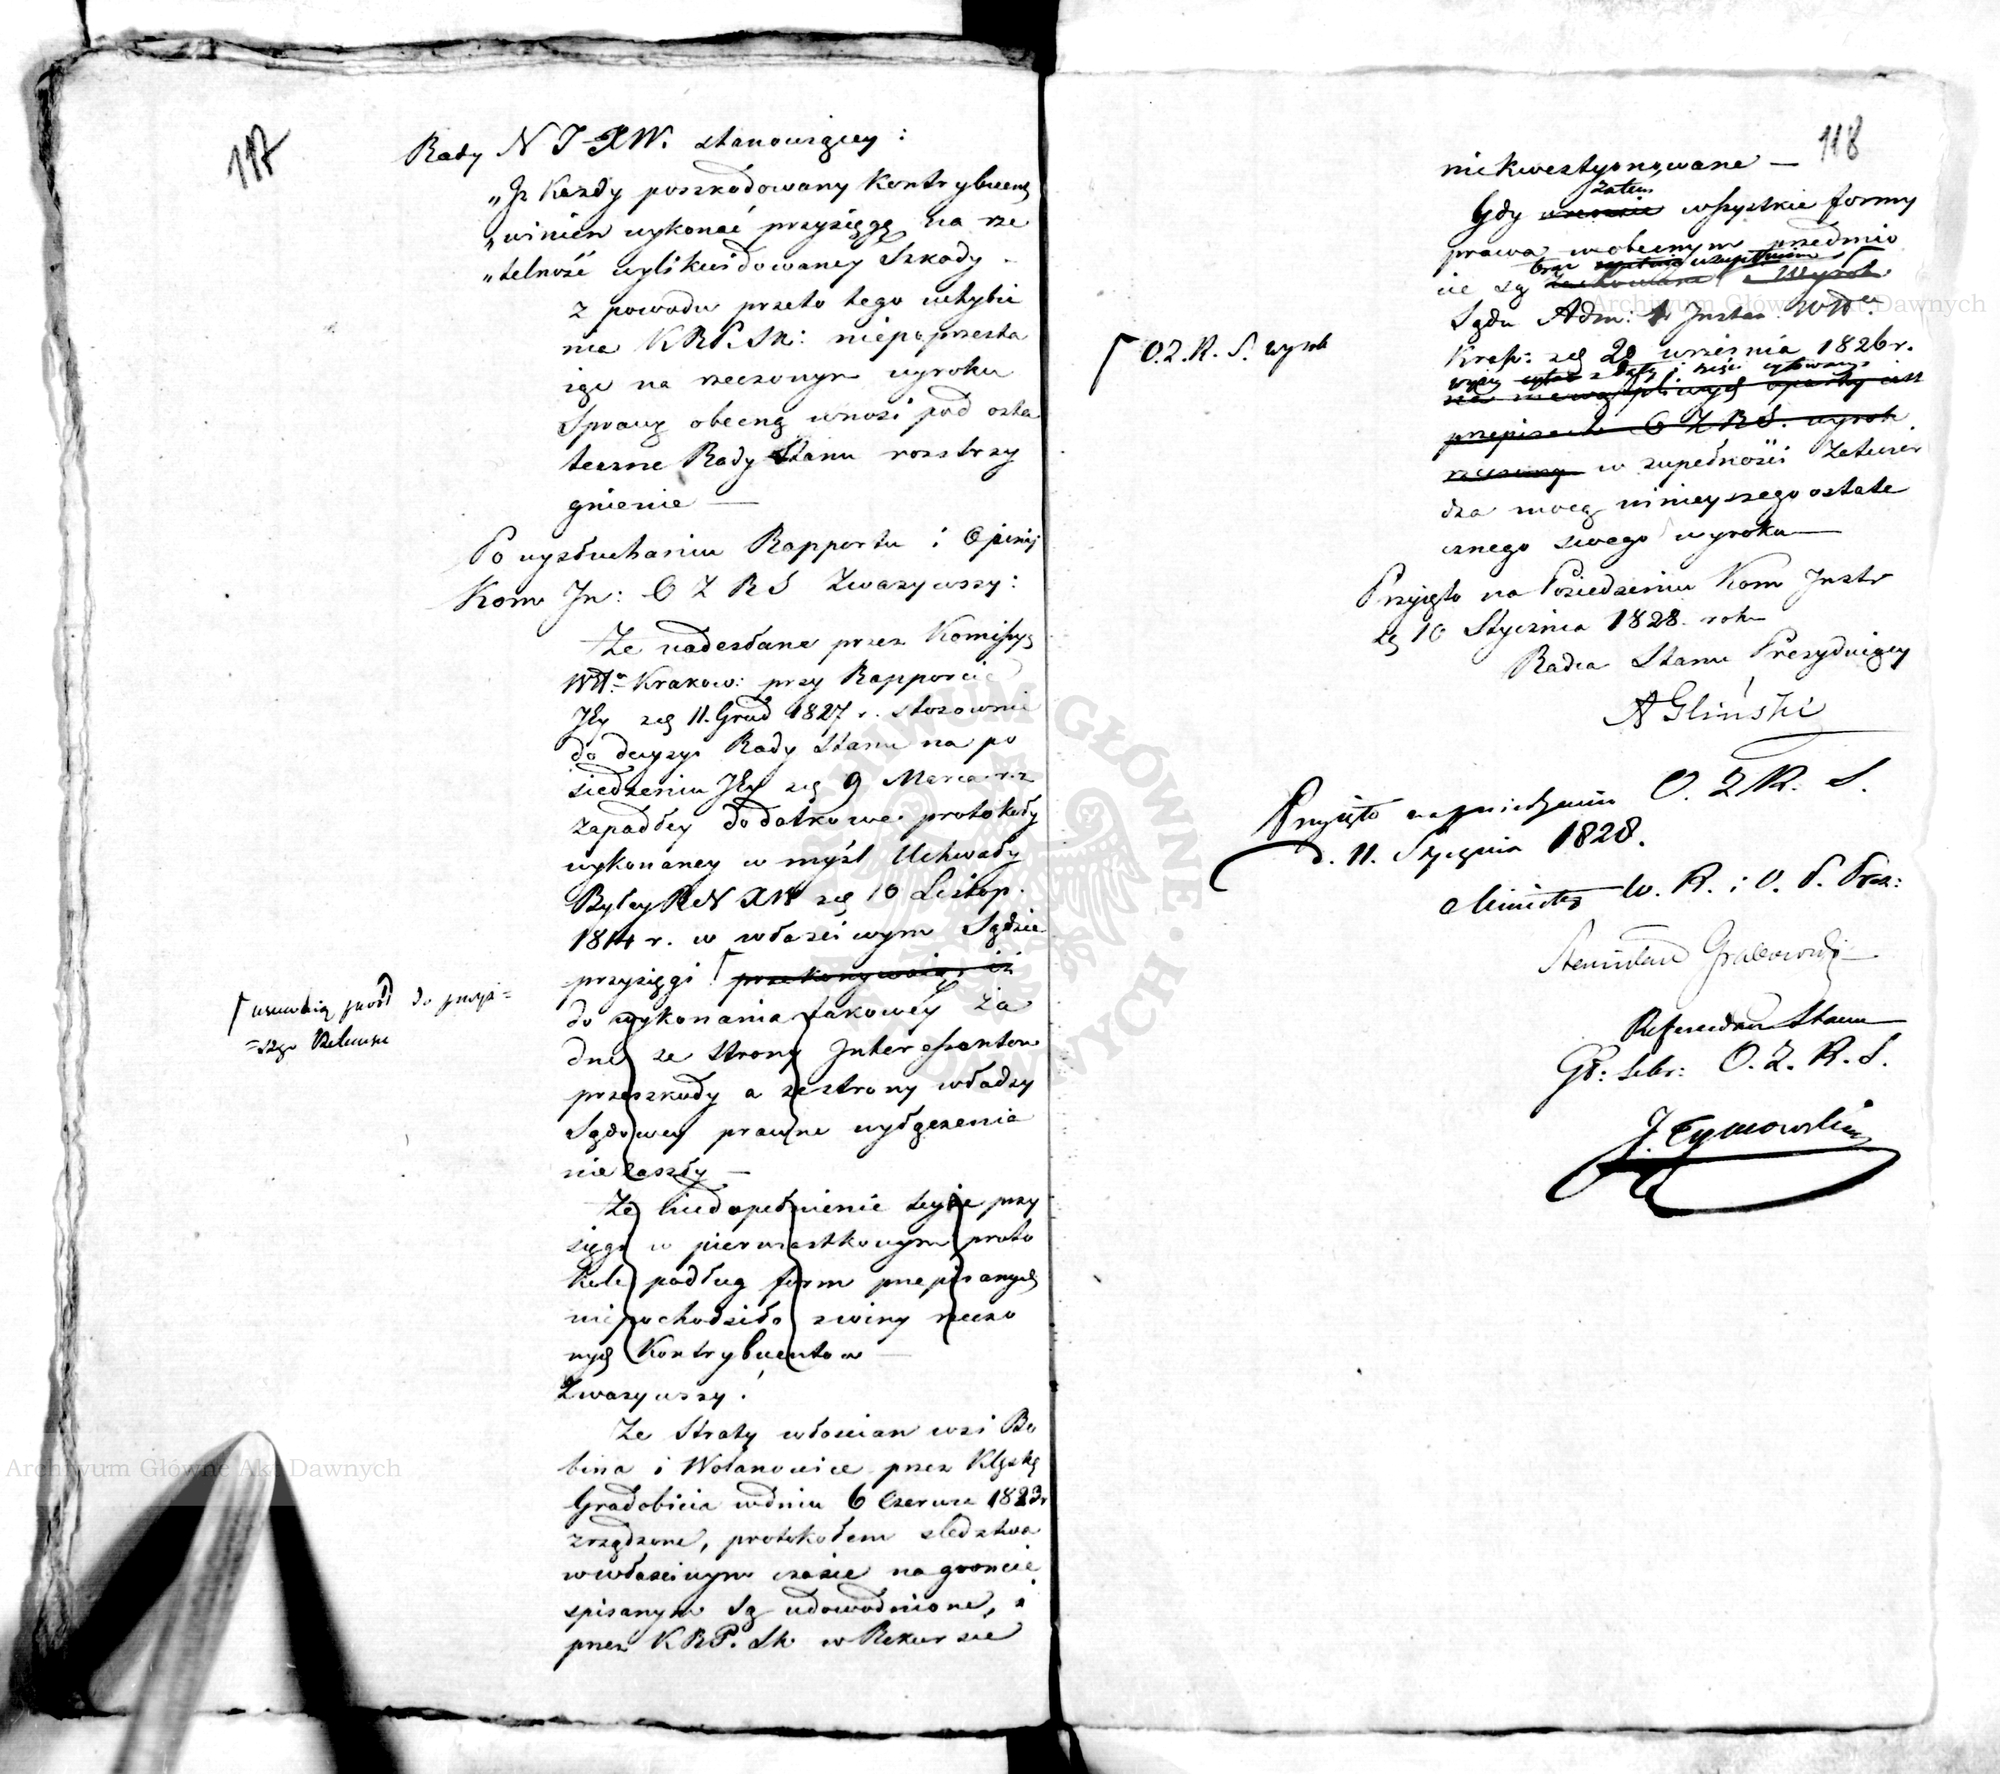 117
Rady N J X W. stanowiący:
„Iż Każdy poszkodowany Kontrybuent
„winien wykonać przysięgę na rze
„telność wylikwidowaney Szkody –
z powodu przeto tego uchybie
nia K R P. Sk: niepoprzesta
iąc na rzeczonym wyroku
Sprawę obecną wnosi pod osta
teczne Rady Stanu rozstrzy
gnienie —
Po wysłuchaniu Rapportu i Opinij
Kom In: O Z R S Zważywszy:
Że nadesłane przez Kommissyą
Wdt. Krakow: przy Rapporcie
Jey z d 11. Grud 1827 r. stosownie
do decyzyi Rady Stanu na po
siedzeniu Jey z d 9 Marca r. z
zapadłey dodatkowe protokoły
wykonaney w myśl Uchwały
Byłey R N X W z d 10 Listop.
1814 r. w właściwym Sądzie
przysięgi przekonywaią iż
usuwaią powód do przyię=
=tego Rekursu
do wykonania takowey ża
dne ze strony Interessantow
przeszkody a ze strony władzy
Sądowey prawne wyłączenia
nie zaszły —
Że niedopełnienie teyże przy
sięgi w pierwiastkowym proto
kole podług form przepisanych
nie pochodziło z winy rzeczo
nych Kontrybuentow —
Zważywszy:
Że Straty włościan wsi Bo
bina i Wolanowice przez Klęskę
Gradobicia w dniu 6 Czerwca 1823 r
zrządzone, protokołem sledztwa
w właściwym czasie na gruncie
spisanym są udowodnione, i
przez K R P. Sk w Rekursie
118
niekwestyonowane —
zatem
Gdy wszystkie formy
prawa w obecnym przedmio
cie są zachowane Wyrok
O. Z. R. S. wyrok
Sądu Adm: I Instan. Wdt
Krak: z d 20 września 1826 r.
przepisach O Z R S. wyrok
rzeczony w zupełności Zatwier
dza mocą ninieyszego ostate
cznego swego wyroku —
Przyięto na Posiedzeniu Kom Instr
z d 10 Stycznia 1828. roku
Radca Stanu Prezyduiący
A Gliński
Przyięto na posiedzeniu O. Z R. S.
d. 11. Stycznia 1828.
Minister W. R. i O. P. Prez:
Stanisław Grabowski
Referendarz Stanu
Gł: Sekr: O. Z. R. S.
J. Tymowski
Archiwum Główne Akt Dawnych
Archiwum Główne Akt Dawnych
ARCHIWUM GŁÓWNE AKT DAWNYCH